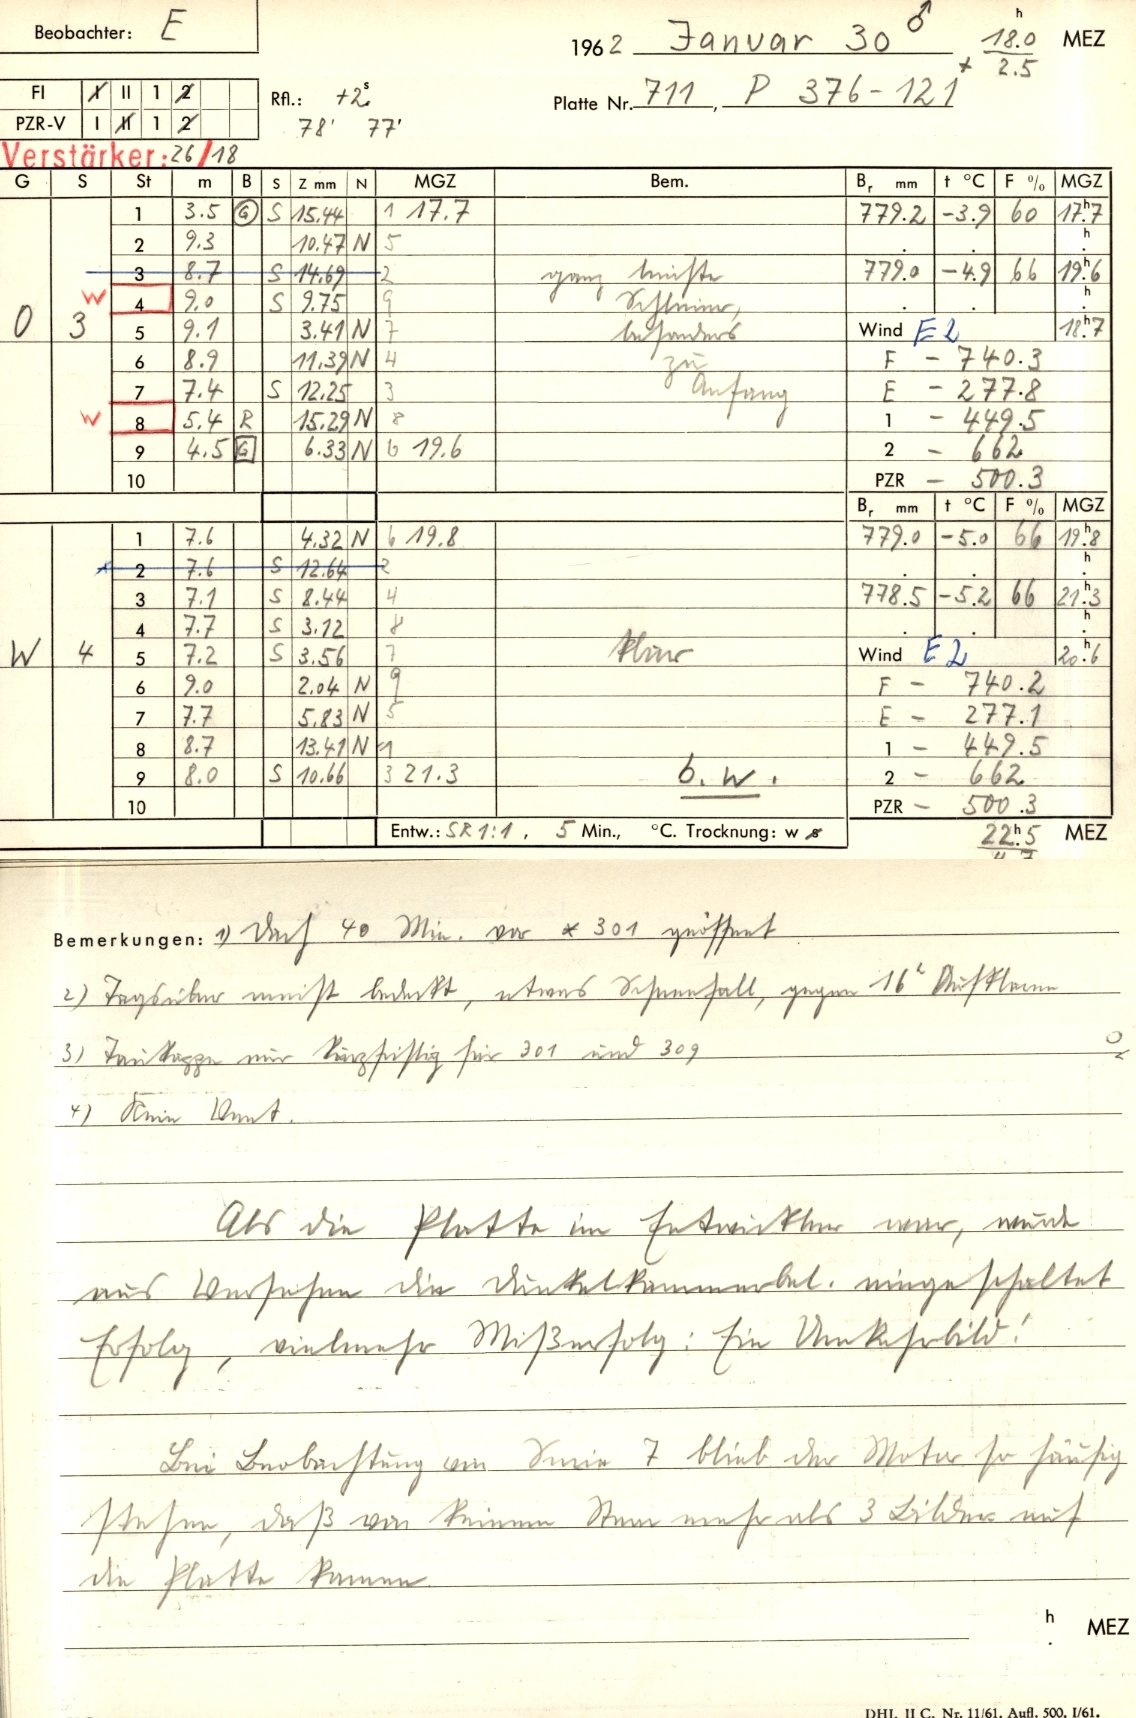 Beobachter: E
1962 Januar 30 ♂ 18.0 h MEZ
+ 2.5
FI I II 1 2
Rfl.: +2s
Platte Nr. 711, P 376-121
PZR-V I II 1 2
78' 77'
Verstärker: 26/18
G S St m B S Z mm N MGZ Bem. Br mm t °C F % MGZ
1 3.5 G S 15.44 1 17.7 779.2 -3.9 60 17h7
2 9.3 10.47 N 5 . . h
3 8.7 S 14.69 2 ganz leichte 779.0 -4.9 66 19h6
W 4 9.0 S 9.75 9 Schleier, . . h
0 3 5 9.1 3.41 N 7 besonders Wind E 2 18h7
6 8.9 11.39 N 4 zu F - 740.3
7 7.4 S 12.25 3 Anfang E - 277.8
W 8 5.4 R 15.29 N 8 1 - 449.5
9 4.5 G 6.33 N 6 19.6 2 - 662
10 PZR - 500.3
Br mm t °C F % MGZ
1 7.6 4.32 N 6 19.8 779.0 -5.0 66 19h8
2 7.6 S 12.64 2 . . h
3 7.1 S 8.44 4 778.5 -5.2 66 21h3
4 7.7 S 3.12 8 . . h
W 4 5 7.2 S 3.56 7 klar Wind E 2 20h6
6 9.0 2.04 N 9 F - 740.2
7 7.7 5.83 N 5 E - 277.1
8 8.7 13.41 N 1 1 - 449.5
9 8.0 S 10.66 3 21.3 b. w. 2 - 662
10 PZR - 500.3
Entw.: SR 1:1, 5 Min., °C. Trocknung: w s 22h5 MEZ
Bemerkungen: 1) Dach 40 Min. vor * 301 geöffnet
2) Tagsüber meist bedeckt, etwas Schneefall, gegen 16h Aufklaren
3) Taukappe nur kurzfristig für 301 und 309
4) Kein Vent.
Als die Platte im Entwickler war, wurde
aus Versehen die Dunkelkammerbel. eingeschaltet
Erfolg, vielmehr Mißerfolg: Ein Umkehrbild!
Bei Beobachtung von Serie 7 blieb der Motor so häufig
stehen, daß von keinem Stern mehr als 3 Bilder auf
die Platte kamen
h MEZ
DHI. II C. Nr. 11/61. Aufl. 500. I/61.